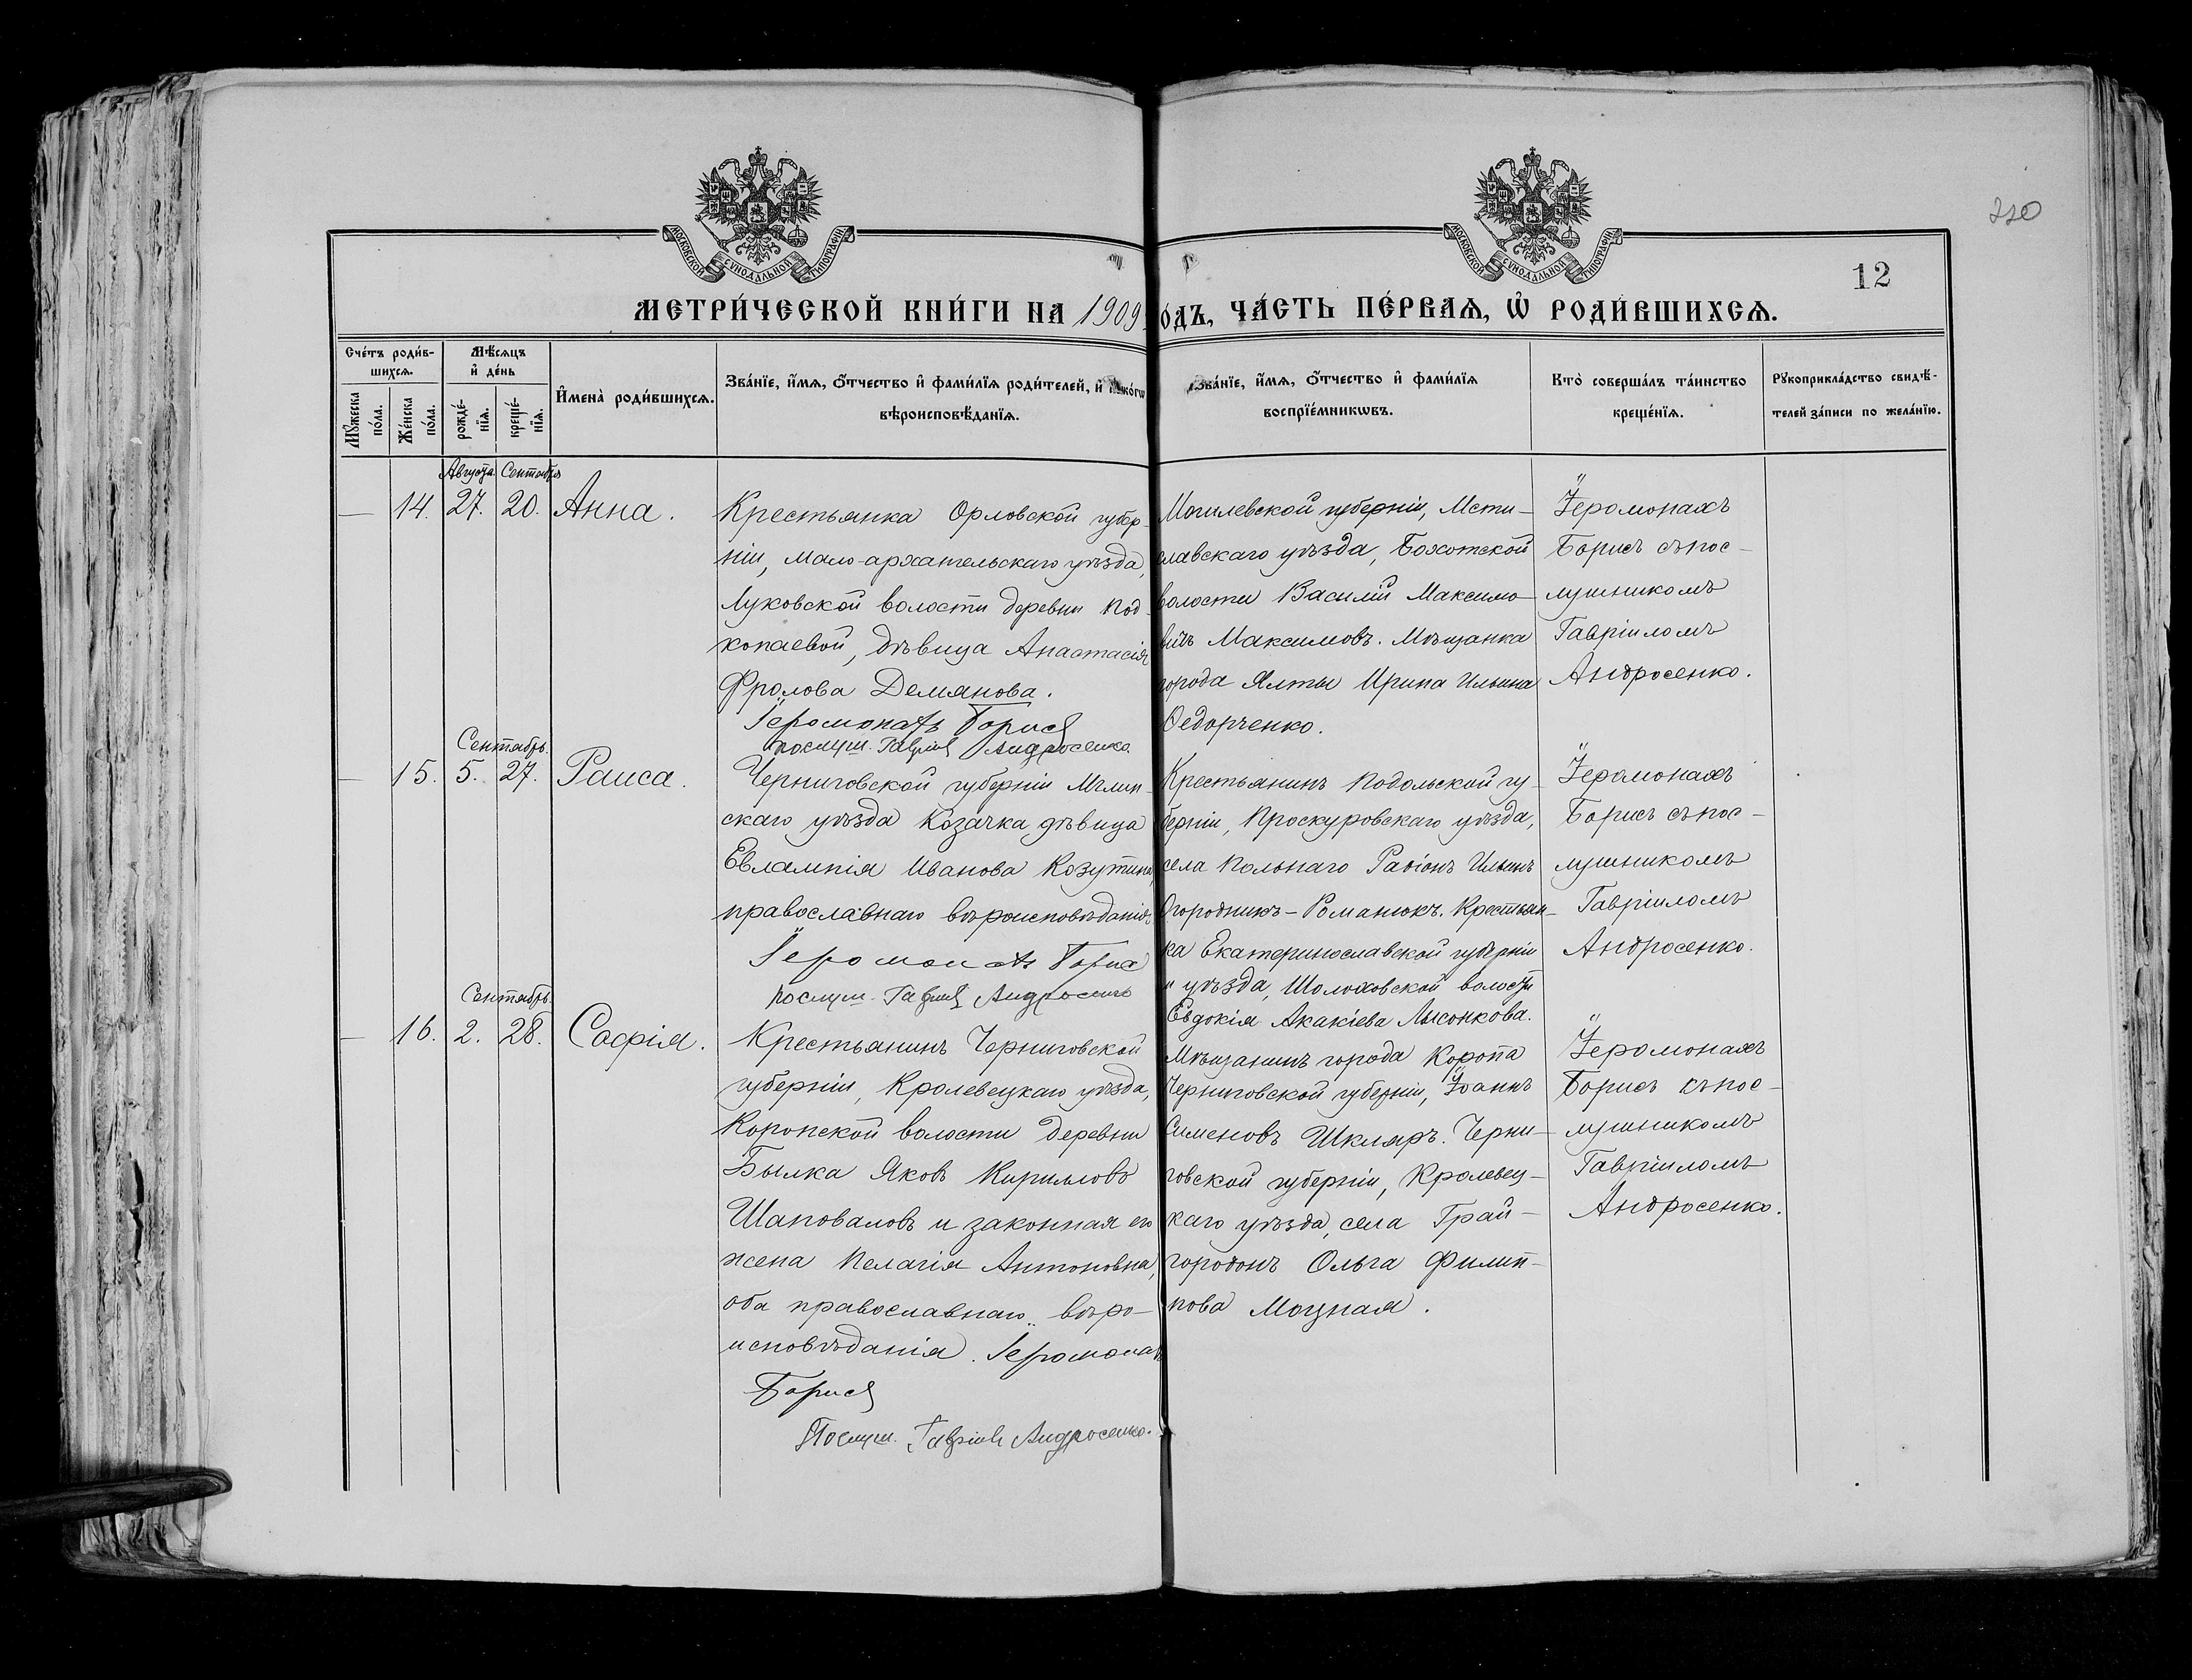 МОСКОВСКОЙ СѴНОДАЛЬНОЙ ТИПОГРАФІИ
МОСКОВСКОЙ СѴНОДАЛЬНОЙ ТИПОГРАФІИ
12
МЕТРИ́ЧЕСКОЙ КНИ́ГИ НА 1909
ОДЪ, ЧА́СТЬ ПЕ́РВАѦ, Ѽ РОДИ́ВШИХСѦ.
Сче́тъ роди́в-
шихсѧ.
Мꙋ́жеска
по́ла.
Же́нска
по́ла.
Мѣ́сѧцъ
и҆ де́нь
рожде́-
нїѧ.
креще́-
нїѧ.
И҆мена̀ роди́вшихсѧ.
Зва́нїе, и҆́мѧ, ѻ҆́тчество и҆ фами́лїѧ роди́телей, и҆
вѣроисповѣ́данїѧ.
Зва́нїе, и҆́мѧ, ѻ҆́тчество и҆ фами́лїѧ
воспрїе́мникѡвъ.
Кто̀ соверша́лъ та́инство
креще́нїѧ.
Рꙋкоприкла́дство свидѣ́-
телей за́писи по жела́нїю.
Августа Сентября
— 14. 27. 20. Анна.
Крестьянка Орловской губер-
ніи, Мало-архательскаго уѣзда,
Луковской волости деревни Под-
копаевой, дѣвица Анастасія
Фролова Демянова.
Іеромонахъ Борисъ
послуш. Гавріилъ Андросенко
Могилевской губерніи, Мсти-
славскаго уѣзда, Бохотской
волости Василій Максимо-
вичъ Максимовъ. Мѣщанка
города Ялты Ирина Ильина
Ѳедорченко.
Іеромонахъ
Борисъ съ пос-
лушникомъ
Гавріиломъ
Андросенко.
Сентябрь.
— 15. 5. 27. Раиса.
Черниговской губерніи Мглин-
скаго уѣзда Козачка, дѣвица
Евлампія Иванова Козутина,
православнаго вѣроисповѣданія
Іеромонахъ Борисъ
послуш. Гавріилъ Андросенко
Крестьянинъ Подольской гу-
берніи, Проскуровскаго уѣзда,
села Польнаго Радіонъ Ильинъ
Огородникъ-Романюкъ. Крестьян-
ка Екатеринославской губерніи
и уѣзда, Шолоховской волости
Евдокія Акакіева Лысонкова.
Іеромонахъ
Борисъ съ пос-
лушникомъ
Гавріиломъ
Андросенко.
Сентябрь.
— 16. 2. 28. Софія.
Крестьянинъ Черниговской
губерніи, Кролевецкаго уѣзда,
Коропской волости деревни
Былка Яковъ Кирилловъ
Шаповаловъ и законная его
жена Пелагія Антоновна,
оба православнаго вѣро-
исповѣданія. Іеромонахъ
Борисъ
Послуш. Гавріилъ Андросенко.
Мѣщанинъ города Коропа
Черниговской губерніи, Іоаннъ
Сименовъ Шкляръ. Черни-
говской губерніи, Кролевец-
каго уѣзда, села Грай-
городонъ Ольга Филип-
пова Моцная.
Іеромонахъ
Борисъ съ пос-
лушникомъ
Гавріиломъ
Андросенко.